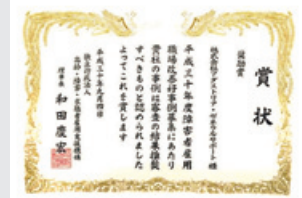 賞状
奨励賞
株式会社アストエア・ゼネラルサポート 様
平成三十年度障害者雇用
職場改善好事例募集にあたり
貴社の事例は審査の結果推奨
すべきものと認められました
よってこれを賞します
平成三十年九月四日
独立行政法人
高齢・障害・求職者雇用支援機構
理事長 和田慶宏